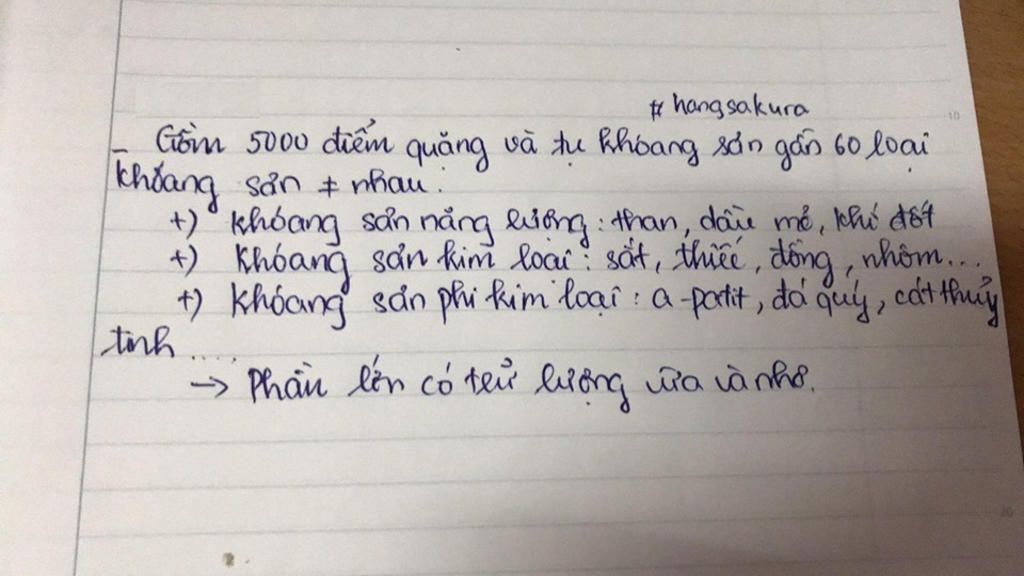 # hangsakura
- Gồm 5000 điểm quặng và tụ khóang sản gần 60 loại
khóang sản ≠ nhau.
+) khóang sản năng lượng: than, dầu mỏ, khí đốt
+) khóang sản kim loại: sắt, thiếc, đồng, nhôm...
+) khóang sản phi kim loại: a-patit, đá quý, cát thủy
tinh.....
→ Phần lớn có trữ lượng vừa và nhỏ.
10
20